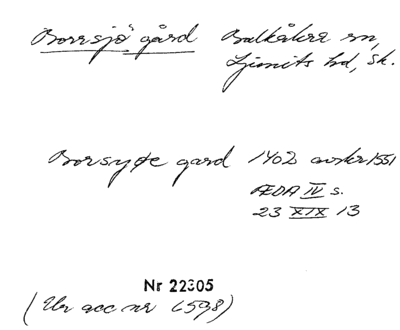 Borrsjö gård Balkåkra sn,
Ljunits hd, Sk.
Borsyøe gard 1402 avskr 1551
ÆDA IV s.
23 XIX 13
Nr 22305
(Ur acc nr 6598)